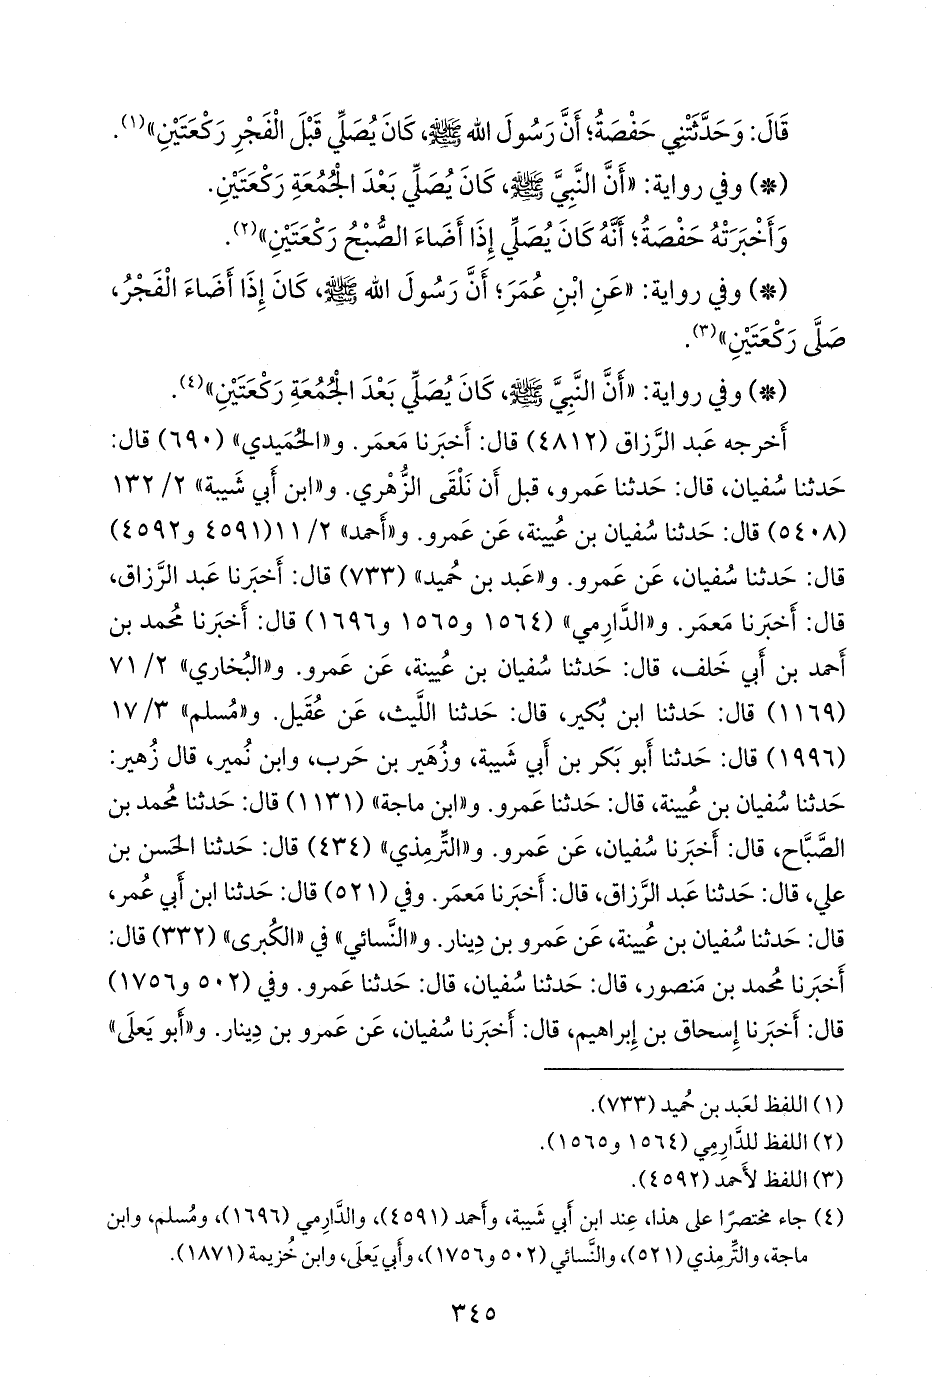 قَالَ: وَحَدَّثَتْنِي حَفْصَةُ؛ أَنَّ رَسُولَ الله ﷺ، كَانَ يُصَلِّي قَبْلَ الْفَجْرِ رَكْعَتَيْنِ»(١).
(*) وفي رواية: «أَنَّ النَّبِيَّ ﷺ، كَانَ يُصَلِّي بَعْدَ الْجُمُعَةِ رَكْعَتَيْنِ.
وَأَخْبَرَتْهُ حَفْصَةُ؛ أَنَّهُ كَانَ يُصَلِّي إِذَا أَضَاءَ الصُّبْحُ رَكْعَتَيْنِ»(٢).
(*) وفي رواية: «عَنِ ابْنِ عُمَرَ؛ أَنَّ رَسُولَ الله ﷺ، كَانَ إِذَا أَضَاءَ الْفَجْرُ،
صَلَّى رَكْعَتَيْنِ»(٣).
(*) وفي رواية: «أَنَّ النَّبِيَّ ﷺ، كَانَ يُصَلِّي بَعْدَ الْجُمُعَةِ رَكْعَتَيْنِ»(٤).
أَخرجه عَبد الرَّزاق (٤٨١٢) قال: أَخبَرنا مَعمَر. و«الحُمَيدي» (٦٩٠) قال:
حَدثنا سُفيان، قال: حَدثنا عَمرو، قبل أن نَلْقَى الزُّهْري. و«ابن أَبي شَيبة» ٢/ ١٣٢
(٥٤٠٨) قال: حَدثنا سُفيان بن عُيينة، عَن عَمرو. و«أَحمد» ٢/ ١١(٤٥٩١ و٤٥٩٢)
قال: حَدثنا سُفيان، عَن عَمرو. و«عَبد بن حُميد» (٧٣٣) قال: أَخبَرنا عَبد الرَّزاق،
قال: أَخبَرنا مَعمَر. و«الدَّارِمي» (١٥٦٤ و١٥٦٥ و١٦٩٦) قال: أَخبَرنا مُحمد بن
أَحمد بن أَبي خَلف، قال: حَدثنا سُفيان بن عُيينة، عَن عَمرو. و«البُخاري» ٢/ ٧١
(١١٦٩) قال: حَدثنا ابن بُكير، قال: حَدثنا اللَّيث، عَن عُقَيل. و«مُسلم» ٣/ ١٧
(١٩٩٦) قال: حَدثنا أَبو بَكر بن أَبي شَيبة، وزُهَير بن حَرب، وابن نُمير، قال زُهير:
حَدثنا سُفيان بن عُيينة، قال: حَدثنا عَمرو. و«ابن ماجة» (١١٣١) قال: حَدثنا مُحمد بن
الصَّبَّاح، قال: أَخبَرنا سُفيان، عَن عَمرو. و«التِّرمِذي» (٤٣٤) قال: حَدثنا الحَسن بن
علي، قال: حَدثنا عَبد الرَّزاق، قال: أَخبَرنا مَعمَر. وفي (٥٢١) قال: حَدثنا ابن أَبي عُمر،
قال: حَدثنا سُفيان بن عُيينة، عَن عَمرو بن دِينار. و«النَّسائي» في «الكُبرى» (٣٣٢) قال:
أَخبَرنا مُحمد بن مَنصور، قال: حَدثنا سُفيان، قال: حَدثنا عَمرو. وفي (٥٠٢ و١٧٥٦)
قال: أَخبَرنا إِسحاق بن إِبراهيم، قال: أَخبَرنا سُفيان، عَن عَمرو بن دِينار. و«أَبو يَعلَى»
(١) اللفظ لعَبد بن حُميد (٧٣٣).
(٢) اللفظ للدَّارِمِي (١٥٦٤ و١٥٦٥).
(٣) اللفظ لأَحمد (٤٥٩٢).
(٤) جاء مختصرًا على هذا، عِند ابن أَبي شَيبة، وأَحمد (٤٥٩١)، والدَّارِمي (١٦٩٦)، ومُسلم، وابن
ماجة، والتِّرمذي (٥٢١)، والنَّسائي (٥٠٢ و١٧٥٦)، وأَبي يَعلَى، وابن خُزيمة (١٨٧١).
٣٤٥